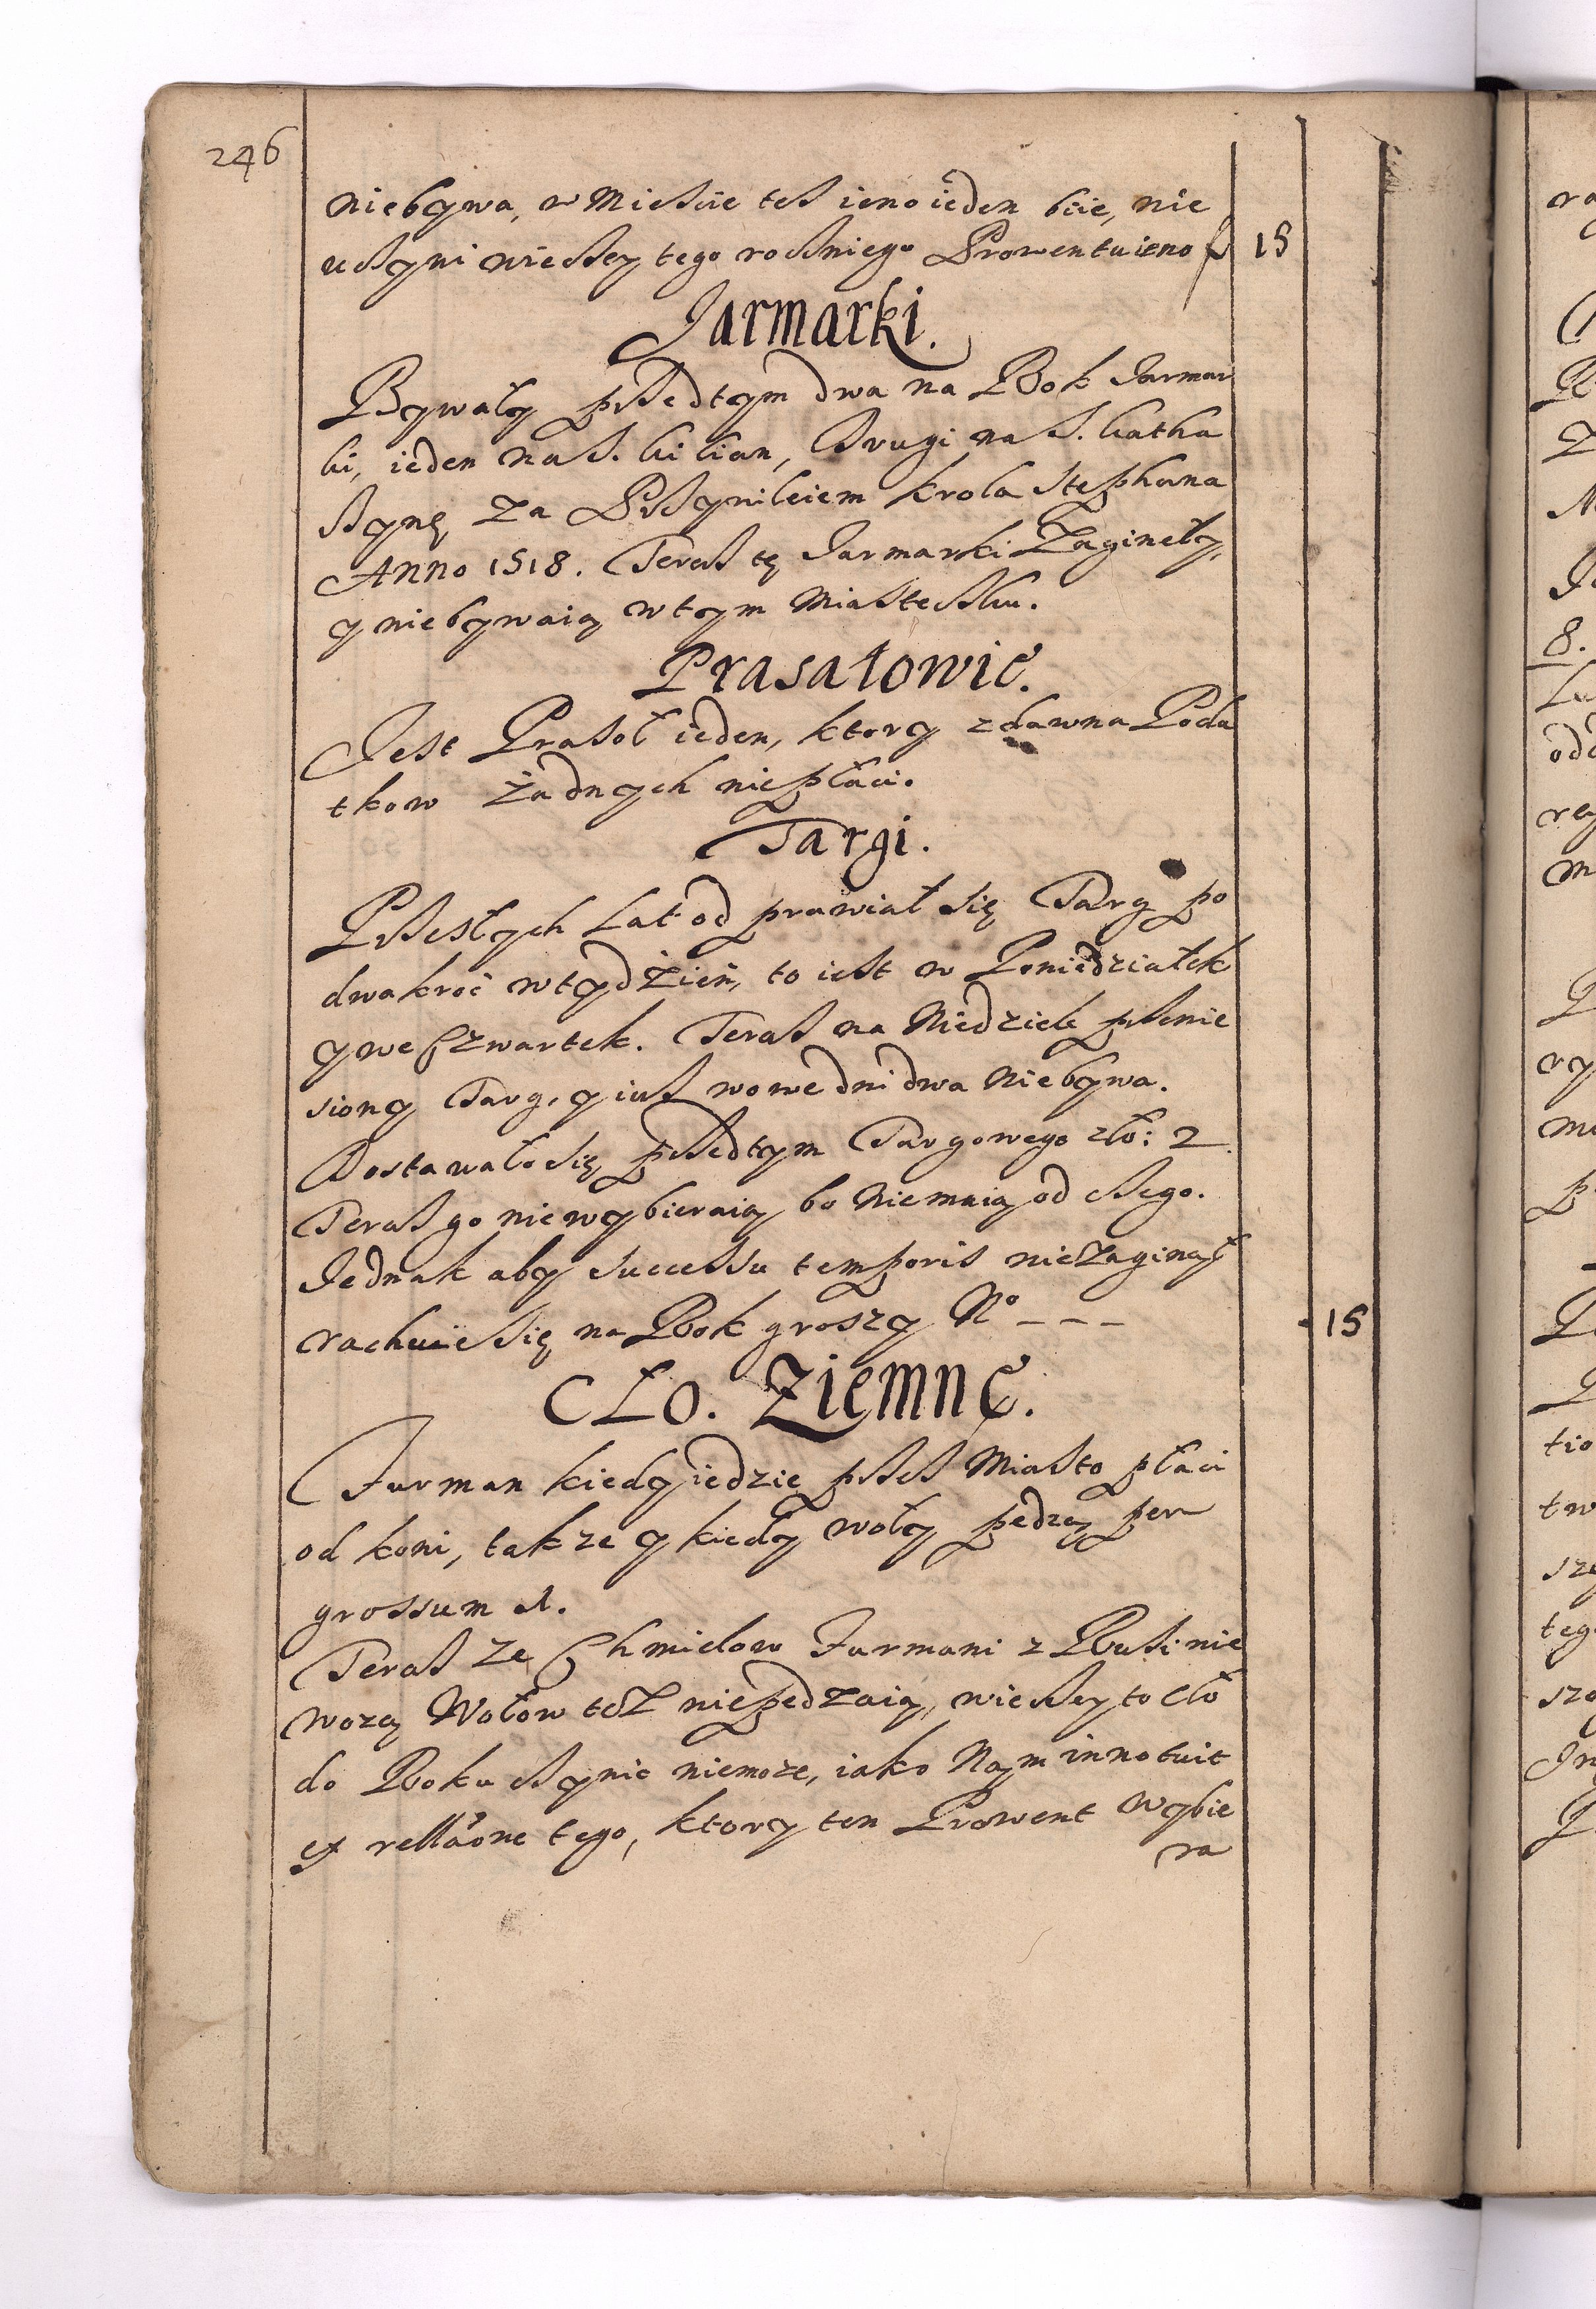 246
niebywa, w Miescie tesz ieno ieden biie, nie
uczyni wieczey tego roczniego Prowentu ieno f 15
Jarmarki.
Bywały przedtym dwa na Rok Jarmar
ki, ieden na S. Kilian, Drugi na S. Katha
rzynę za Przywileiem Krola Stephana
Anno 1518. Terasz tę Jarmarki Zaginęły,
y niebywaią w tym Miasteczku.
Prasałowie.
Jest Prasoł ieden, ktory zdawna Poda
tkow żadnych niepłaci.
Targi.
Przeszłych Lat odprawiał się Targ po
dwakroć w tydzień, to iest w Poniedziałek
y we Czwartek. Terasz na Niedziele przenie
siony Targ, y iusz wowe dni dwa Niebywa.
Dostawało się przedtym Targowego zło: 2
Terasz go niewybieraią bo Niemaią od czego.
Jednak aby successu temporis nieZaginął
rachuie się na Rok groszy No - - - - 15
CŁO. ZIEMNE.
Furman kiedy iedzie przesz Miasto płaci
od koni, takze y kiedy woły pędzą per
grossum 1.
Terasz ze Chmielow Furmani z Rusi nie
wozą Wołow też niepędzaią, wieczey to cło
do Roku czynic niemoze, iako Nam innotuit
ex rellaõne tego, ktory ten Prowent wybie
ra